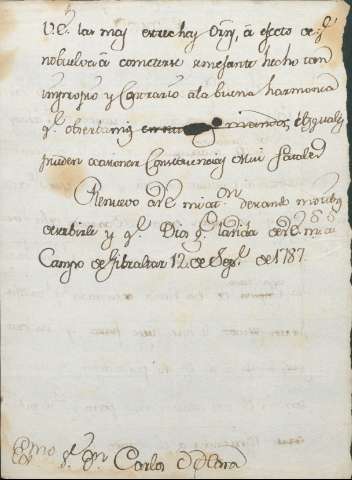 V.E. las mas estrechas Orns, a efecto de q.e
no buelva a cometerse semejante hecho tan
impropio y Contrario a la buena harmonia
q.e observamos
pueden ocasionar Consequencias mui fatales
Renuevo a V.E. mi at.on deseando motivos
de servirle y q.e Dios g.e la vida de V.E. m.s a.s
Campo de Gibraltar 12. de Sep.e de 1787.
Exmo S.or D.n Carlos O Hara